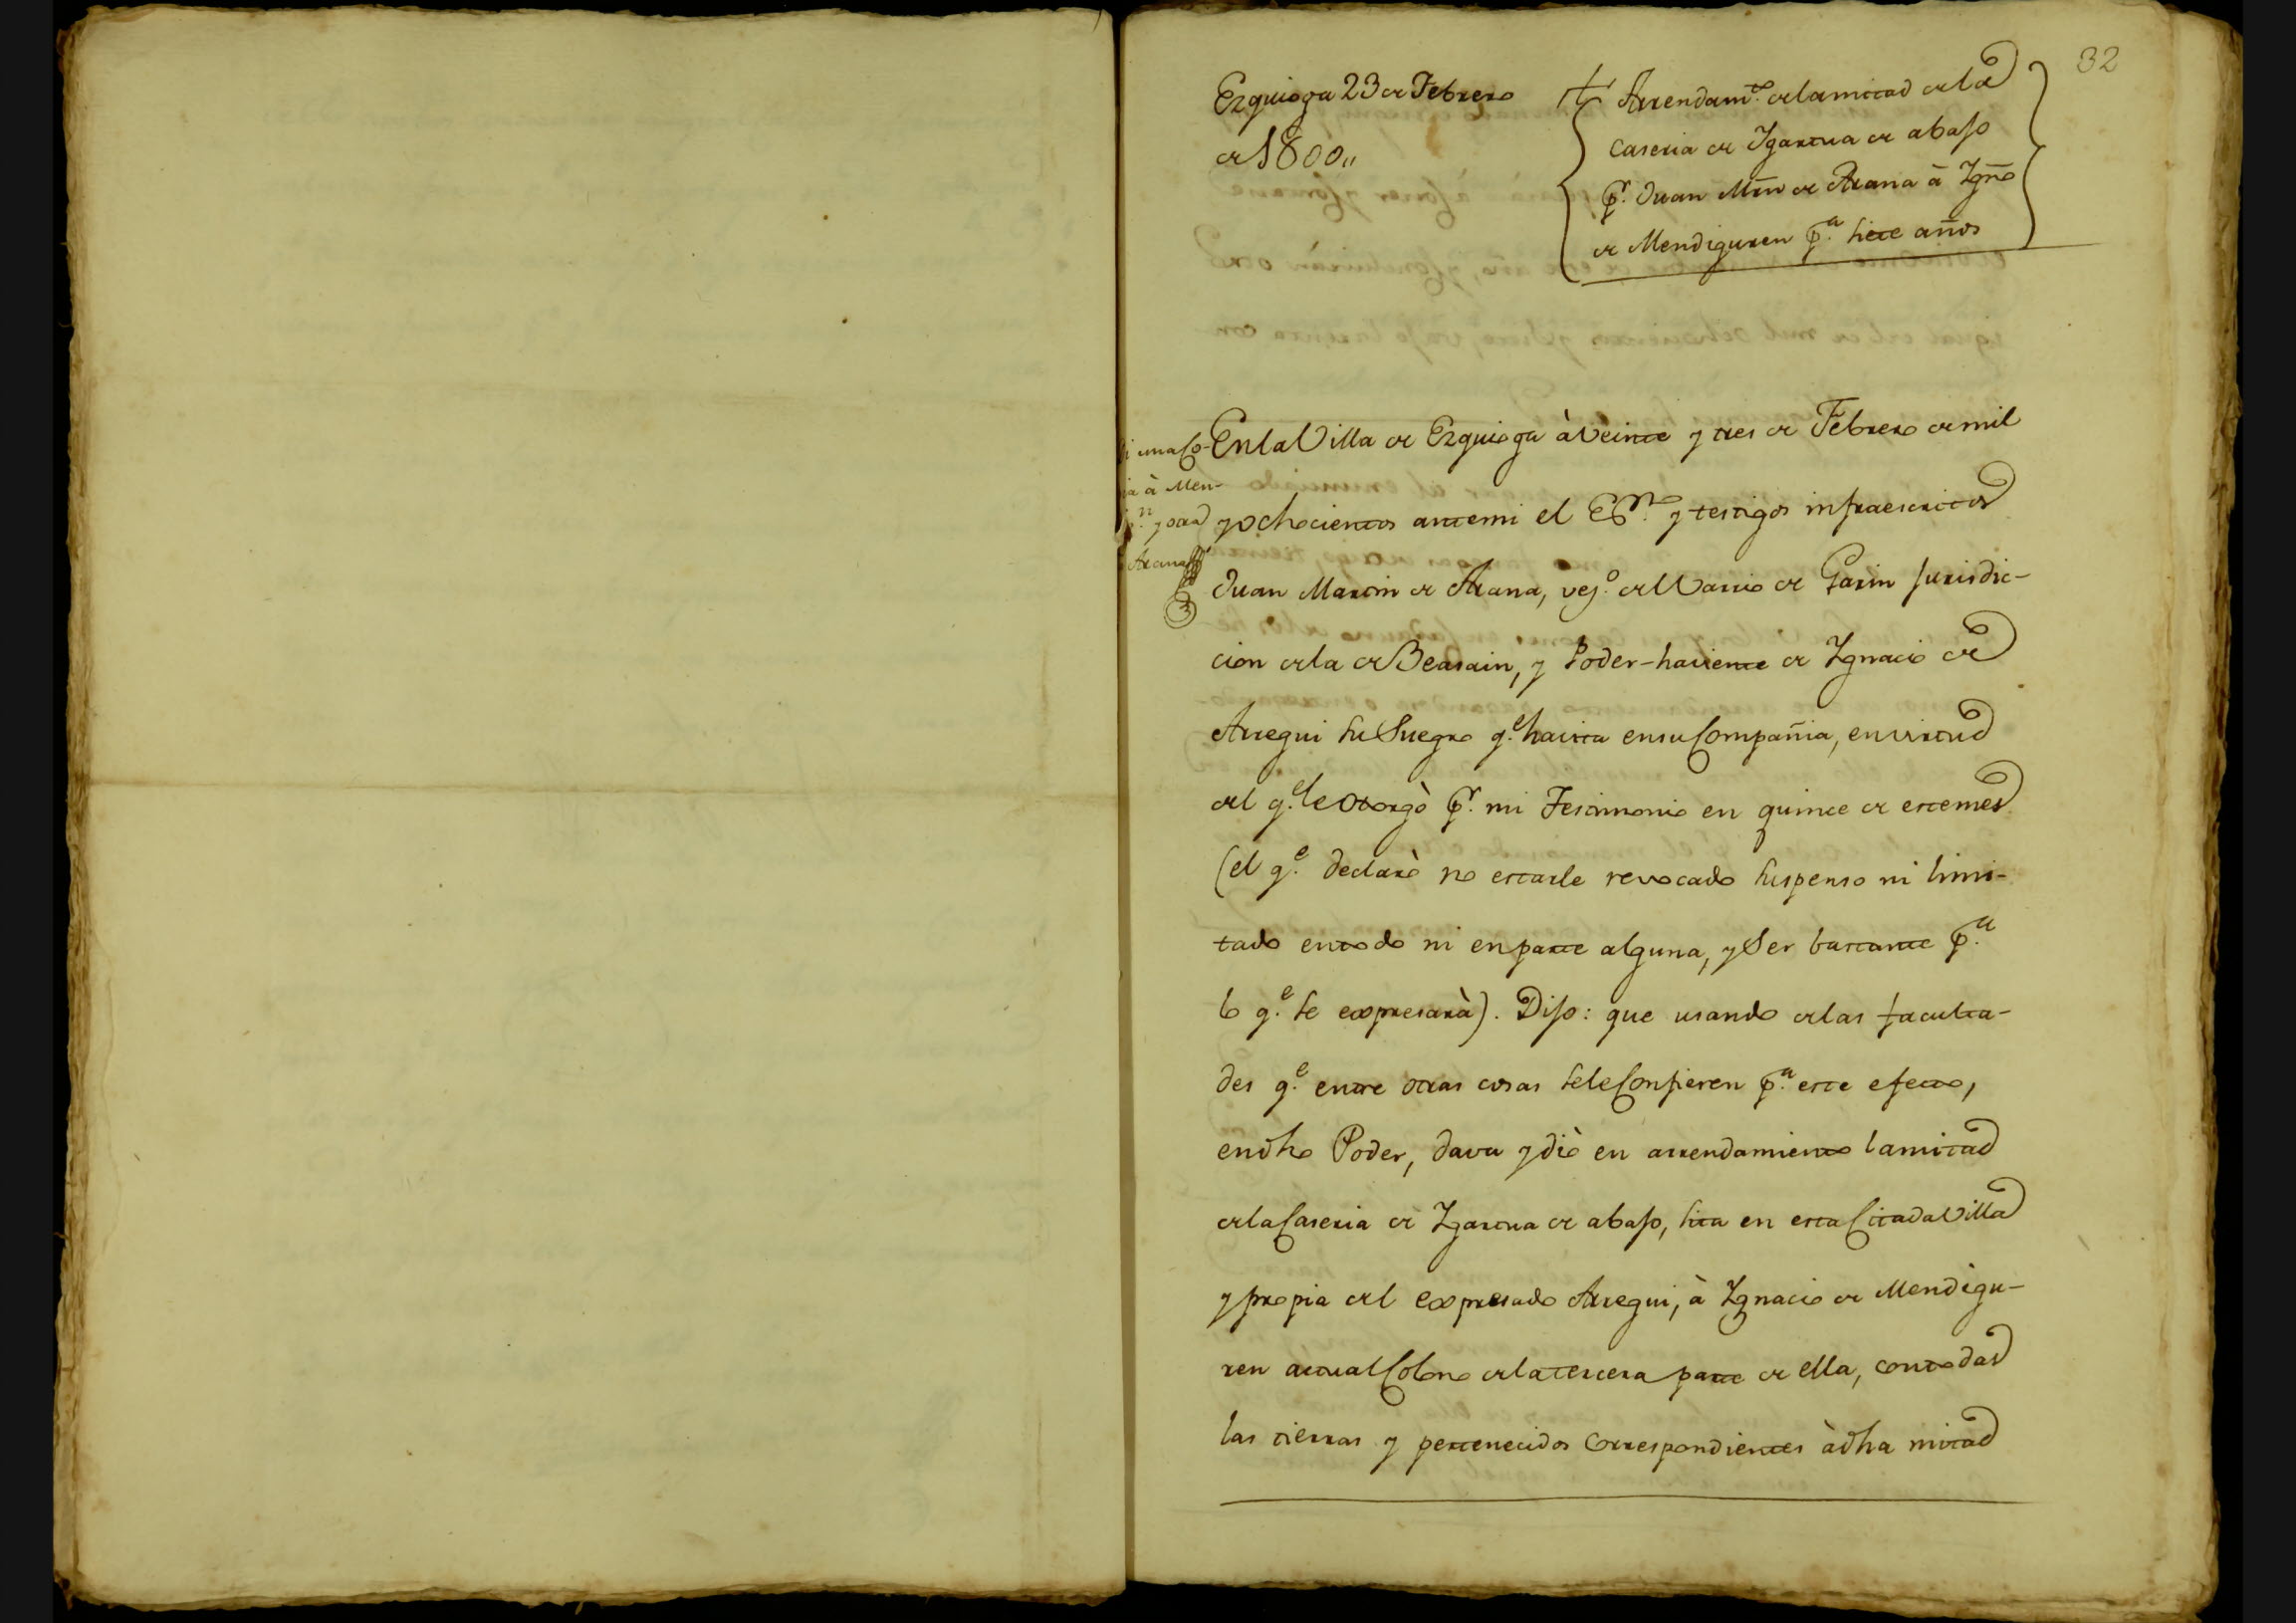 32
Ezquioga 23 de Febrero
de 1800,,
Arrendam.to de la mitad de la
caseria de Ygartua de abajo
p.r Juan Mrn de Arana à Ygn.o
de Mendiguren p.a siete años
una Co-
à Men-
n y otra
Arana
En la Villa de Ezquioga à veinte y tres de Febrero de mil
y ochocientos ante mi el Es.no y testigos infraescritos
Juan Martin de Arana, vez.o del Varrio de Garin Jurisdic-
cion de la de Beasain, y Poder-haviente de Ygnacio de
Arregui su Suegro q.e havita en su Compañia, en virtud
del q.e le otorgò p.r mi Testimonio en quince de este mes
(el q.e declarò no estarle revocado suspenso ni limi-
tado en todo ni en parte alguna, y Ser bastante p.a
lo q.e se expresarà). Dijo: que usando de las faculta-
des q.e entre otras cosas se le Confieren p.a este efecto,
en dho Poder, dava y diò en arrendamiento la mitad
de la Caseria de Ygartua de abajo, sita en esta Citada Villa
y propia del expresado Arregui, à Ygnacio de Mendigu-
ren actual Colono de la tercera parte de ella, con todas
las tierras y pertenecidos correspondientes à dha mitad